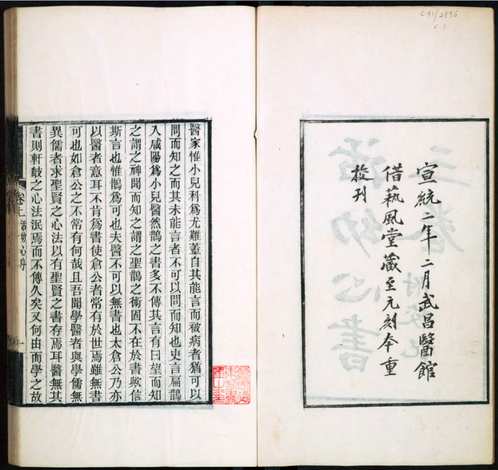 宣統二年二月武昌醫館
借藝風堂藏至元刻本重
校刊
醫家惟小兒科爲尤難蓋自其能言而被病者猶可以
問而知之而其未能言者不可以問而知也史言扁鵲
入咸陽爲小兒醫然鵲之書多不傳其言有曰望而知
之謂之神聞而知之謂之聖鵲之術固不在於書歟信
斯言也惟鵲爲可也夫醫不可以無書也太倉公乃亦
以醫者意耳不肯爲書使倉公者常有於世焉雖無書
可也如倉公之不常有何哉且吾聞學醫者與學儒無
異儒者求聖賢之心法以有聖賢之書存焉耳醫無其
書則軒岐之心法泯焉而不傳久矣又何由而學之故